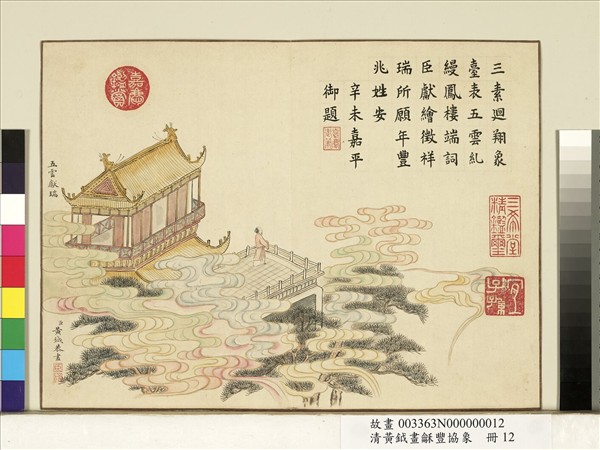 三素迴翔象
臺表五雲糺
縵鳳樓端詞
臣獻繪徵祥
瑞所願年豐
兆姓安
辛未嘉平
御題
五雲獻瑞
臣黃鉞恭畫
嘉慶鑑賞
三希堂精鑑璽
宜子孫
故畫 003363N000000012
清黃鉞畫龢豐協象 冊 12